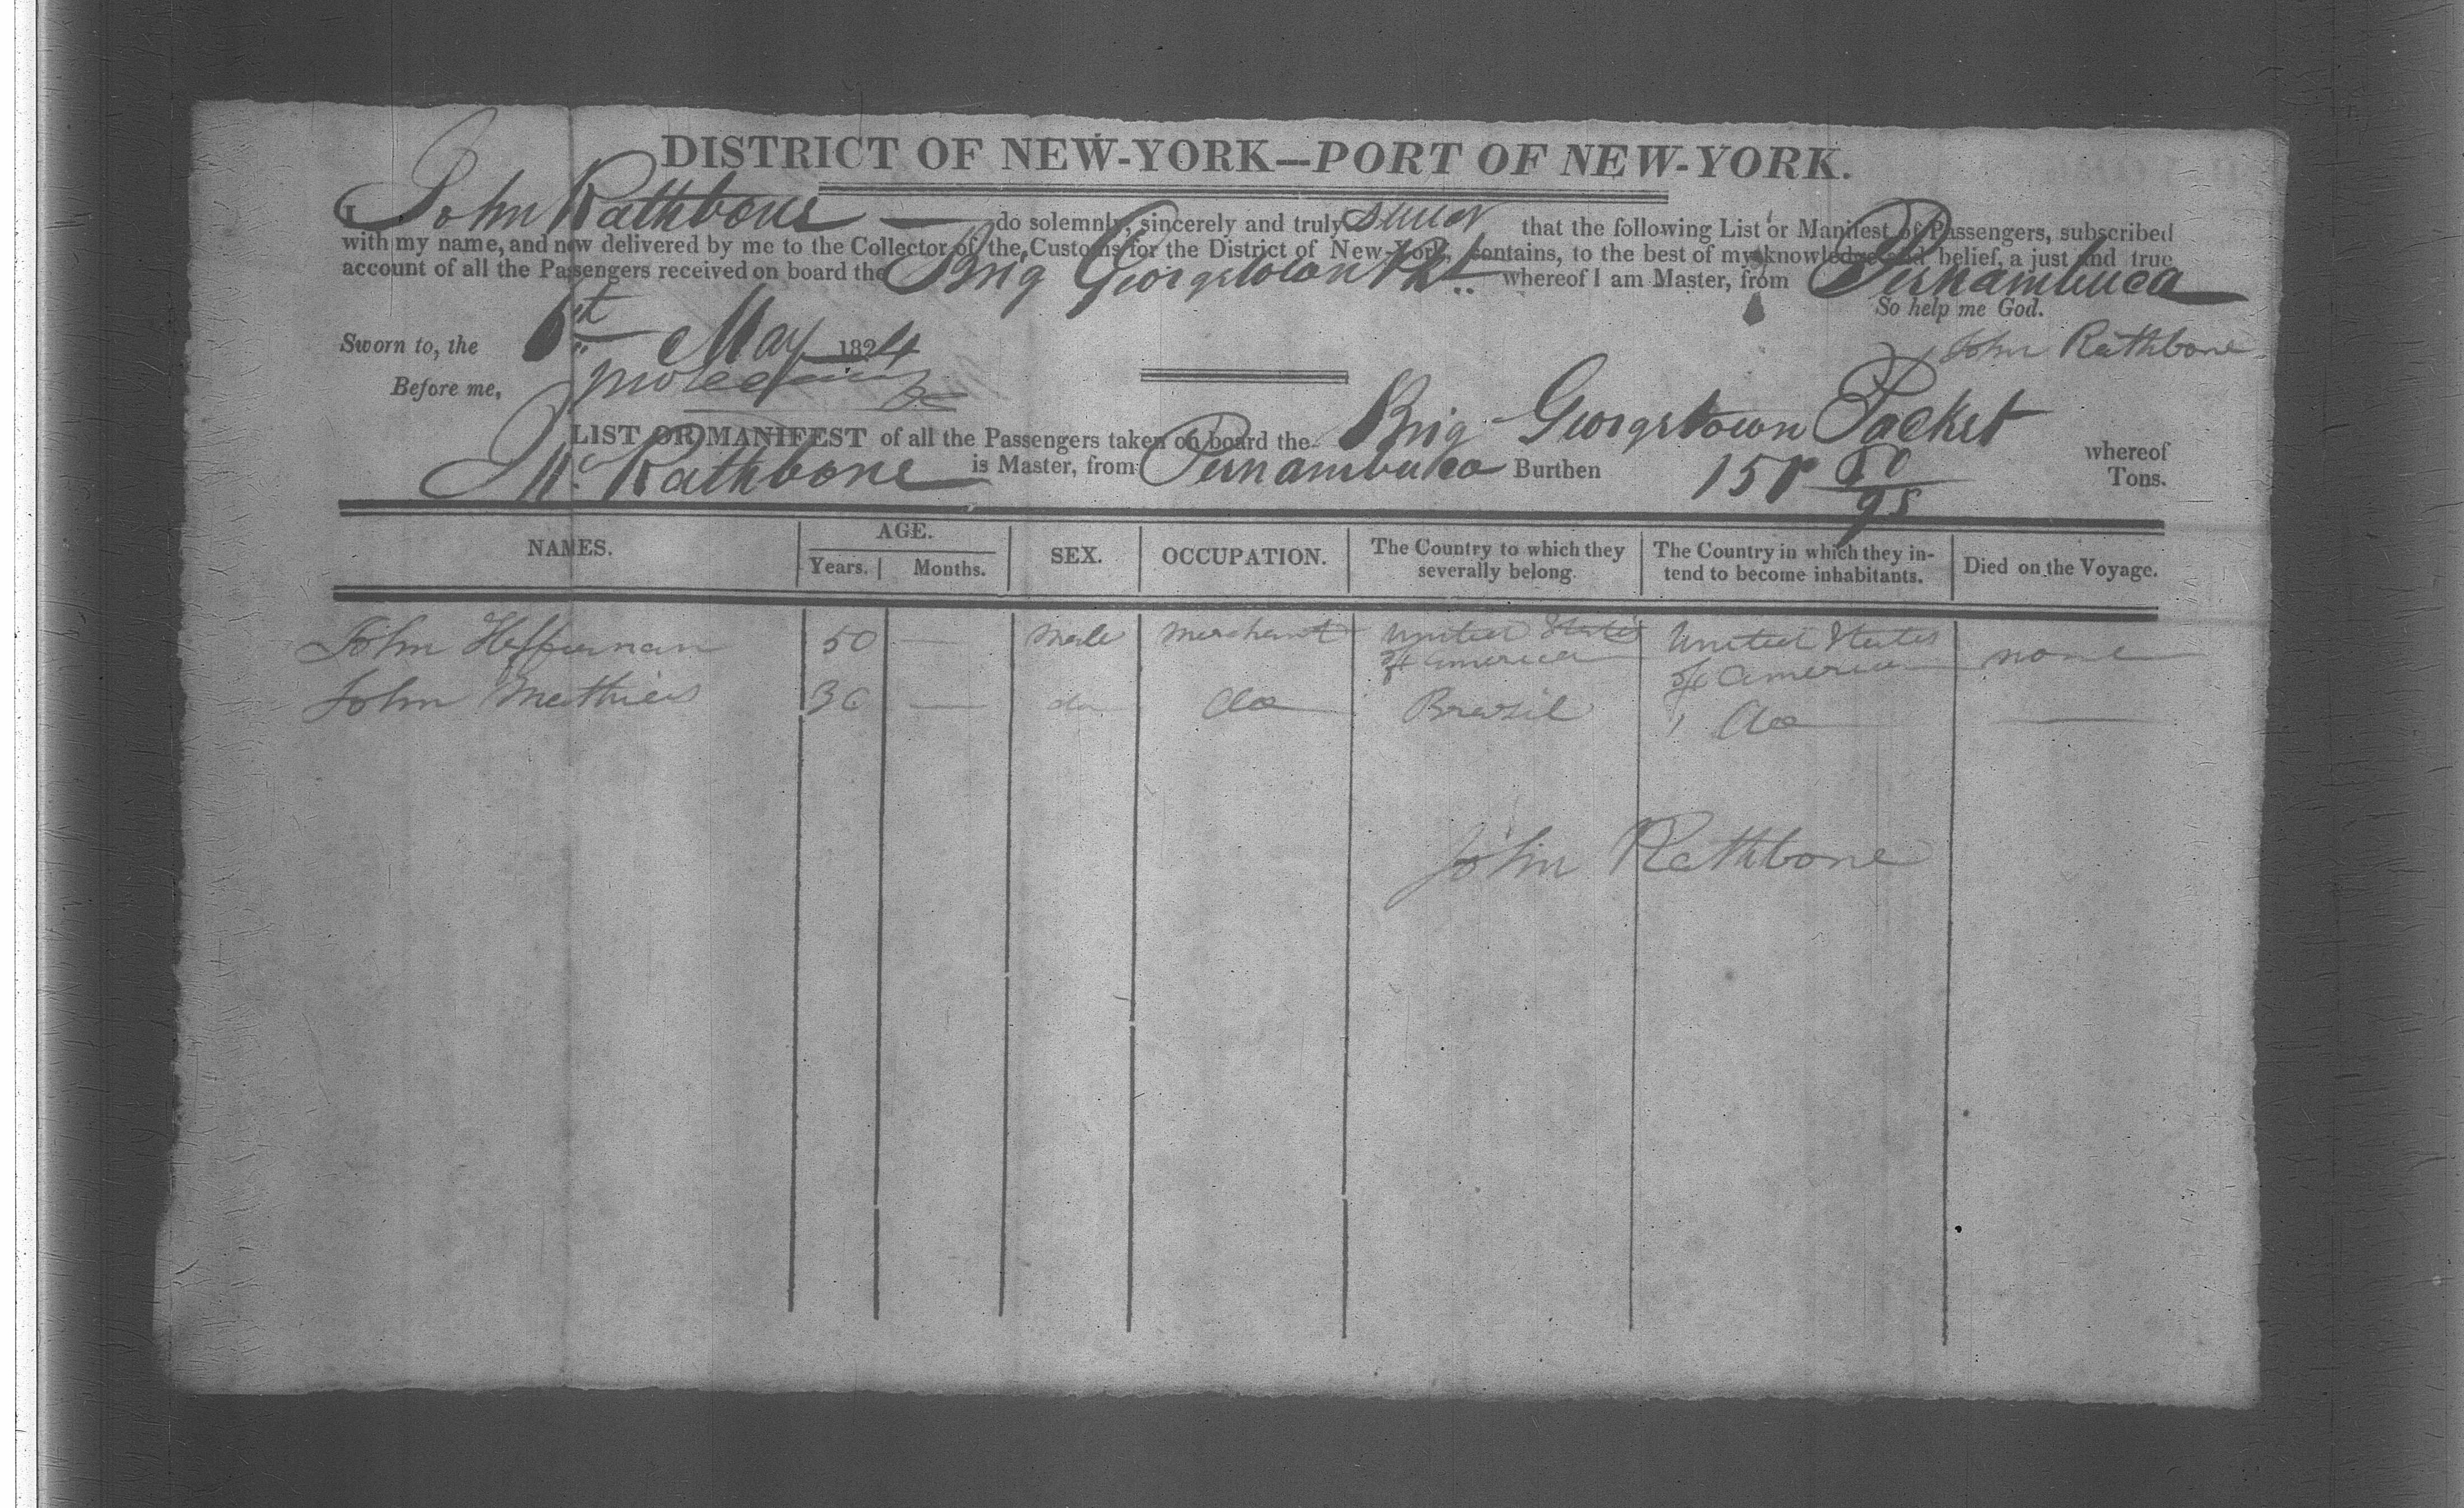 DISTRICT OF NEW-YORK—PORT OF NEW-YORK.
I John Rathbone — do solemnly, sincerely and truly swear that the following List or Manifest of Passengers, subscribed
with my name, and now delivered by me to the Collector of the Customs for the District of New-York, contains, to the best of my knowledge and belief, a just and true
account of all the Passengers received on board the Brig Georgetown Pkt whereof I am Master, from Pernambuca
So help me God.
Sworn to, the 6th May 1824
John Rathbone
Before me,
LIST OR MANIFEST of all the Passengers taken on board the Brig Georgetown Packet whereof
Rathbone is Master, from Pernambuco Burthen Tons.
NAMES. AGE. SEX. OCCUPATION. The Country to which they severally belong. The Country in which they intend to become inhabitants. Died on the Voyage.
Years. Months.
John Heffernan 50 — male merchant United States of America United States of America none
John Mathies 36 — do do Brazil do —
John Rathbone